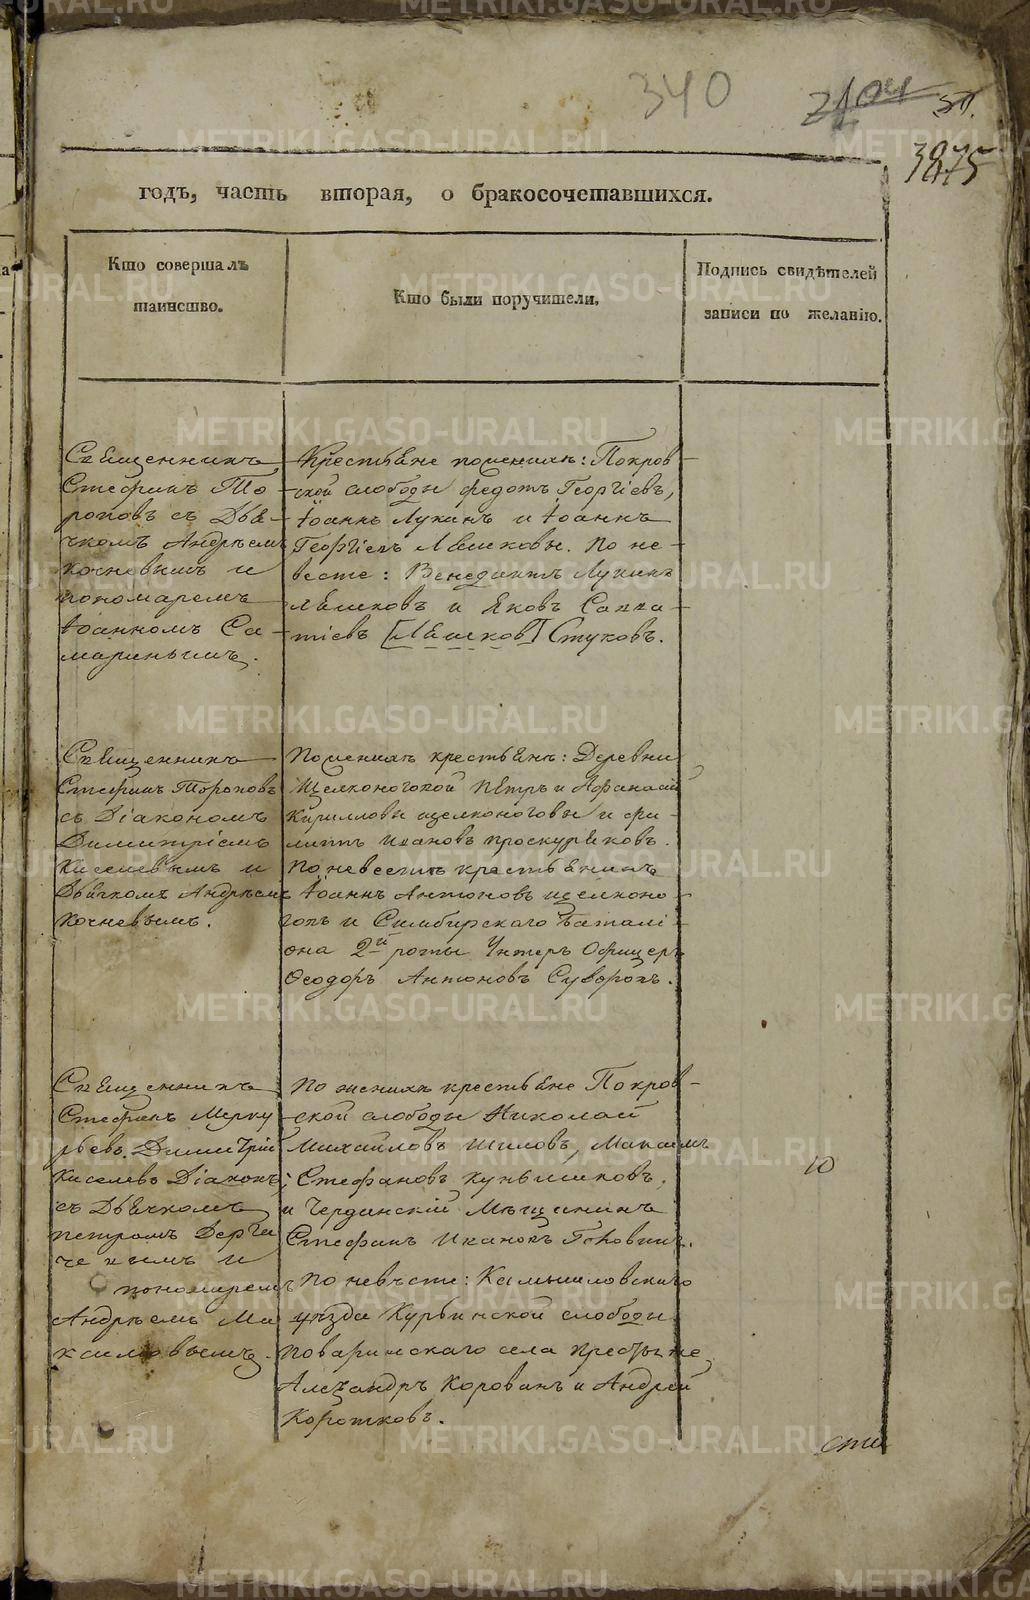 340
годъ, часть вторая, о бракосочетавшихся.
Кто совершалъ
таинство.
Кто были поручители.
Подпись свидѣтелей
записи по желанію.
Священникъ
Стефанъ То-
роповъ съ Дья-
чкомъ Андреемъ
Кочневымъ и
пономаремъ
Іоанномъ Са-
мариньимъ.
Крестьяне по женихѣ: Покров-
ской слободы Федотъ Георгіевъ,
Іоаннъ Лукинъ и Іоаннъ
Георгіевъ Лѣшковы. По не-
вѣсте: Венедиктъ Лукинъ
Лѣшковъ и Яковъ Савва-
тіевъ [Лѣшков] Стуковъ.
Священникъ
Стефанъ Тороповъ
съ Діакономъ
Димитріемъ
Киселевымъ и
Дьячкомъ Андреемъ
Кочневымъ.
По женихѣ крестьянъ: Деревни
Щелконоговой Пётръ и Афанасій
Кирилловы Щелконоговы и Фи-
липъ Ивановъ Проскуряковъ.
По невестѣ крестьянинъ
Іоаннъ Антоновъ Щелконо-
говъ и Симбирскаго баталі-
она 2й роты Унтеръ Офицеръ
Ѳеодоръ Антоновъ Суворовъ.
Священникъ
Стефанъ Мерку-
рьевъ. Димитрій
Киселевъ Діаконъ
съ Дьячкомъ
Петромъ Дерга-
чевымъ и
пономаремъ
Андреемъ Ма
ксимовымъ.
По женихѣ крестьяне Покров-
ской слободы Николай
Михайловъ Шиловъ, Максимъ
Стефановъ Куньшиковъ,
и Чердинскій Мѣщанинъ
Стефанъ Ивановъ
По невѣсте: Камышловскаго
уѣзда Курьинской слободы
Поваринскаго села крестьяне
Александръ Коровинъ и Андрей
Коротковъ.
10
METRIKI.GASO-URAL.RU